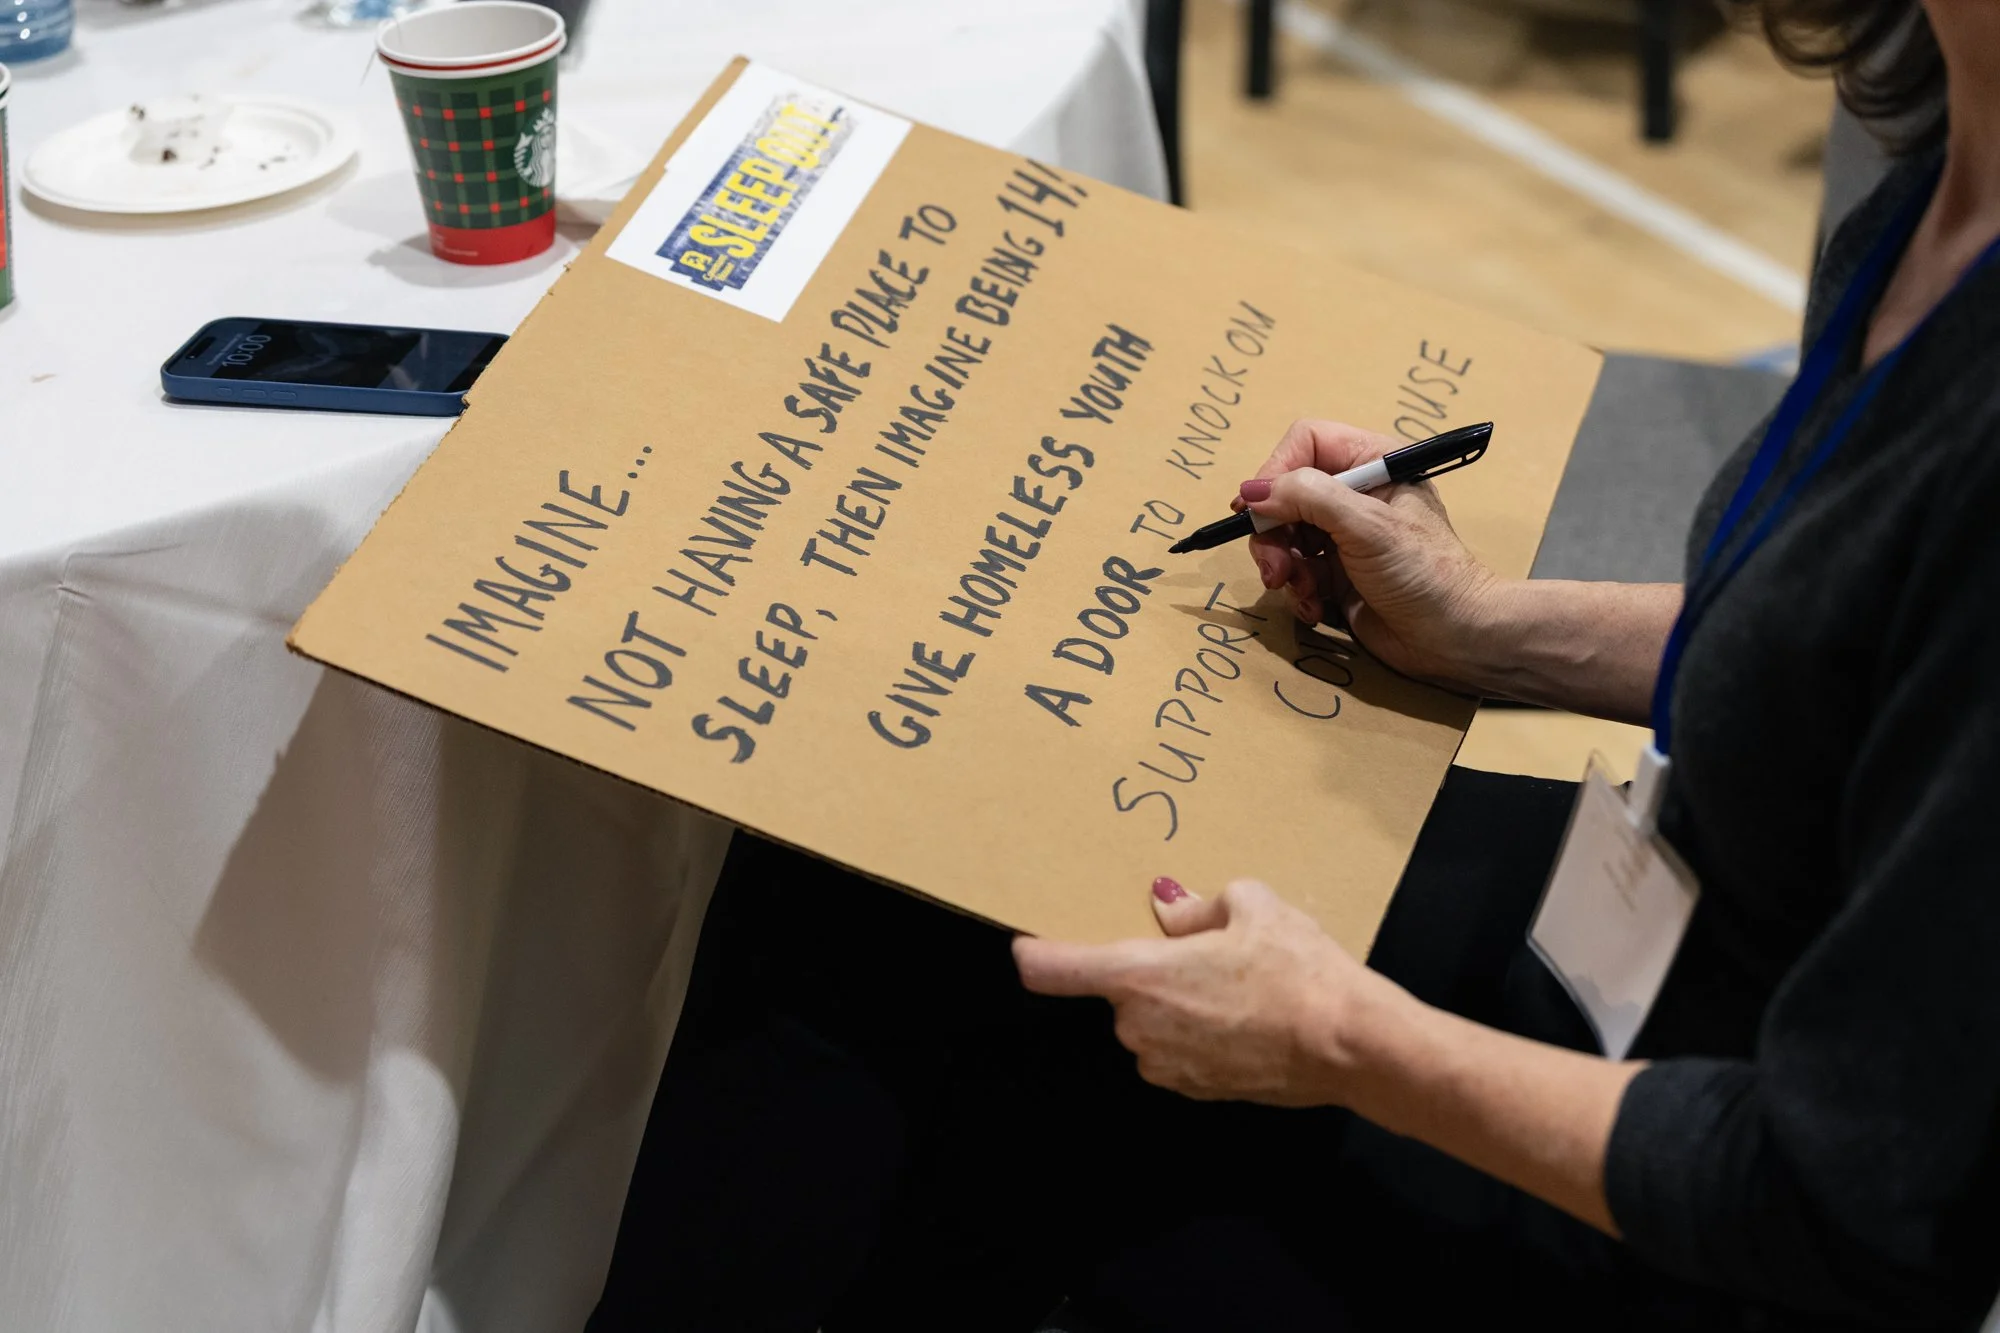 SLEEP OUT
IMAGINE...
NOT HAVING A SAFE PLACE TO
SLEEP, THEN IMAGINE BEING 14!
GIVE HOMELESS YOUTH
A DOOR TO KNOCK ON
SUPPORT
10:00